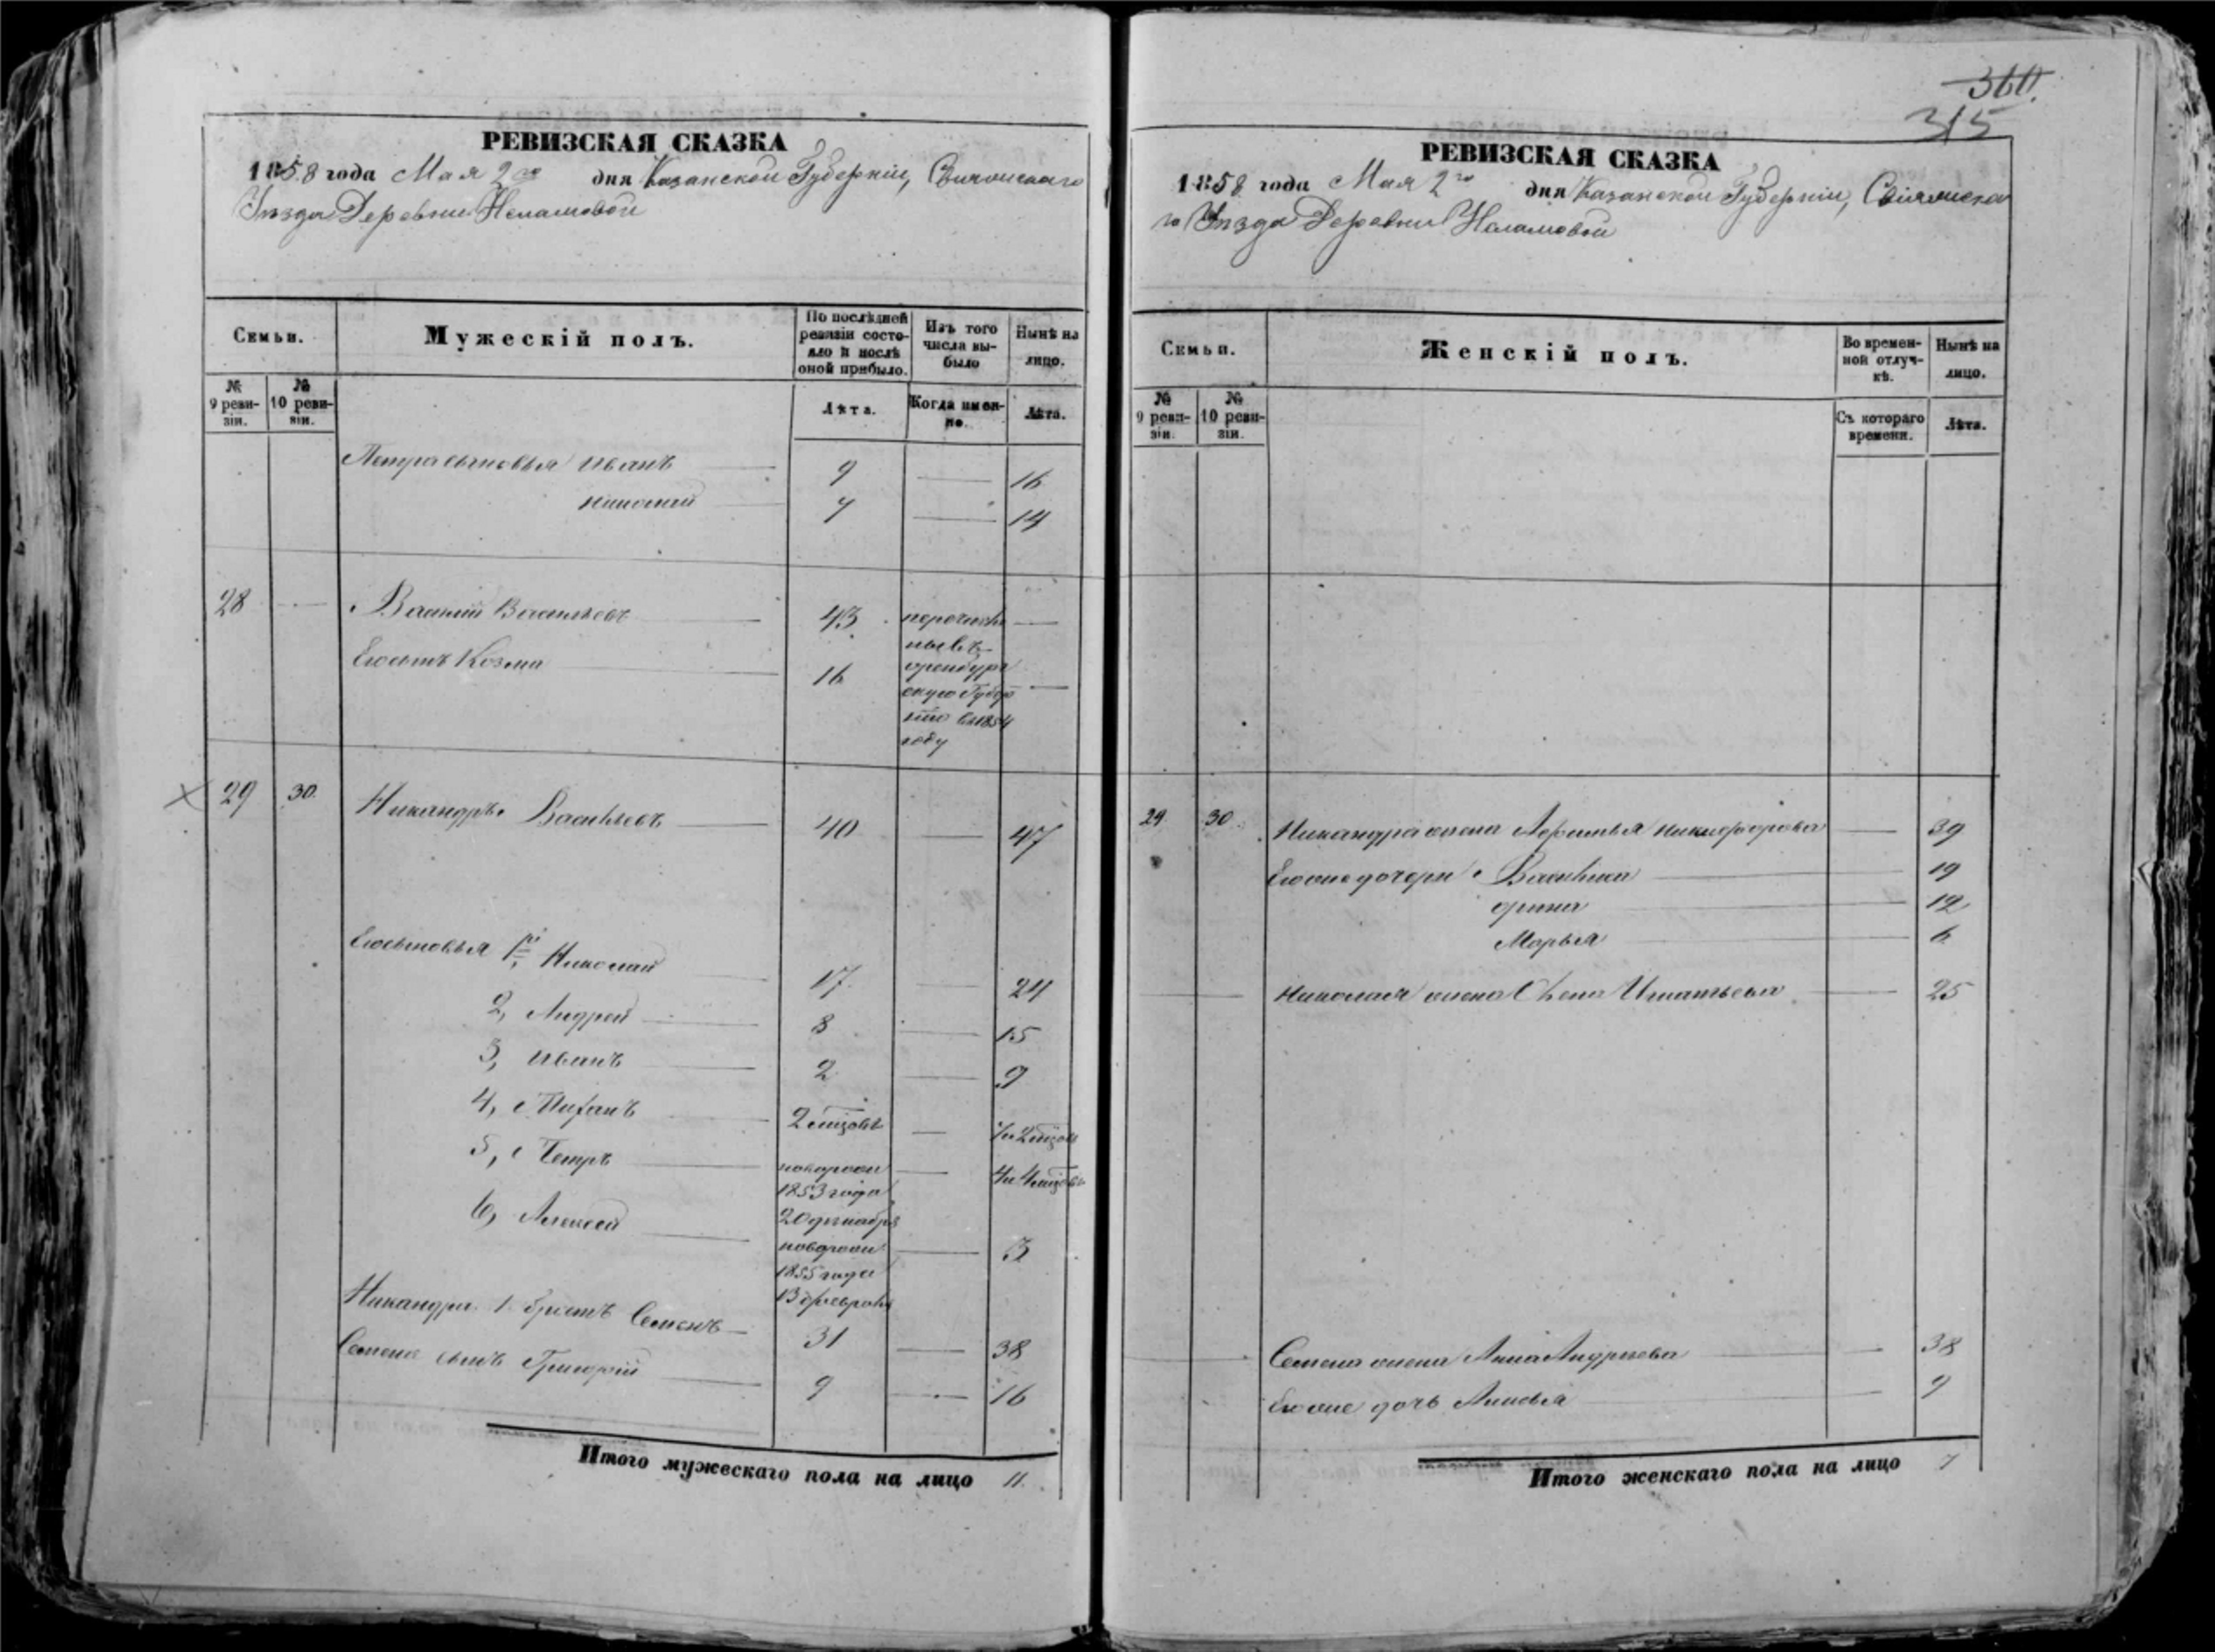 360
315
РЕВИЗСКАЯ СКАЗКА
1858 года Мая 2го дня Казанской Губерніи, Свіяжскаго
Уезда Деревни
Семьи.
Мужескій полъ.
По послѣдней ревизіи состояло и послѣ оной прибыло.
Изъ того числа выбыло
Нынѣ на лицо.
№ 9 ревизіи.
№ 10 ревизіи.
Лѣта.
Когда именно.
Лѣта.
Петра сыновья Иванъ 9 — 16
Николай 7 — 14
28 — Василій Васильевъ 43 —
Его сынъ Козма 16 —
перечислены въ
оренбург
скую Губер
нію въ 1854
году
29 30. Никандръ Васильевъ 40 — 47
Его сыновья 1й Николай 17 — 24
2, Андрей 8 — 15
3, Иванъ 2 — 9
4, 2 мѣсяцовъ —
5, Петръ новорожд — 4 и 4 мѣсяцов
1853 года
20 декабря
6, Алексей новорожд — 3
1855 года
13 февраля
Никандра 1 братъ Семенъ 31 — 38
Семена сынъ Григорій 9 — 16
Итого мужескаго пола на лицо 11.
РЕВИЗСКАЯ СКАЗКА
1858 года Мая 2го дня Казанской Губерніи, Свіяжска
го Уезда Деревни
Семьи.
Женскій полъ.
Во временной отлучкѣ.
Нынѣ на лицо.
№ 9 ревизіи.
№ 10 ревизіи.
Съ котораго времени.
Лѣта.
29 30. Никандра жена Никифорова — 39
Его же дочери Василиса 19
орина 12
Марья 6
Николая жена Игнатьева — 25
Семена жена Анна Андреева — 38
Его же дочь — 9
Итого женскаго пола на лицо 7